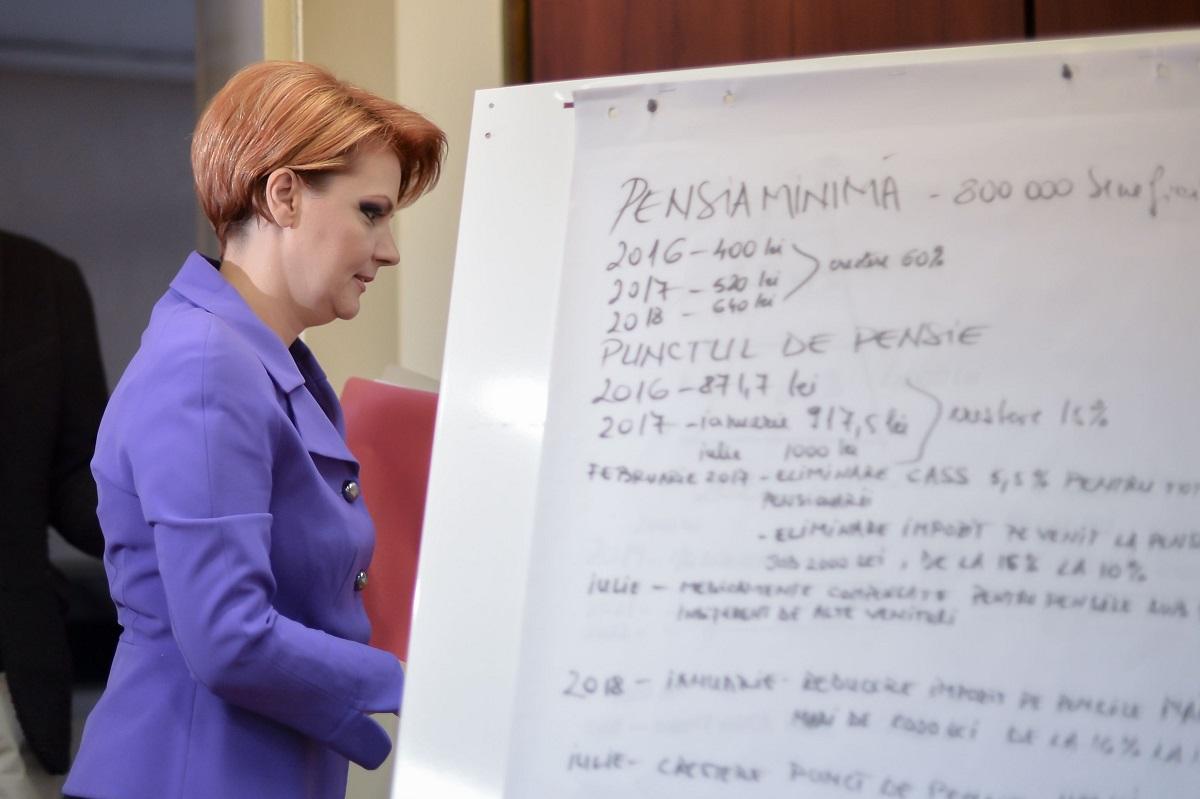 PENSIA MINIMĂ - 800 000 benefici
2016 - 400 lei
2017 - 520 lei creștere 60%
2018 - 640 lei
PUNCTUL DE PENSIE
2016 - 871,7 lei
2017 - ianuarie 917,5 lei creștere 15%
iulie 1000 lei
FEBRUARIE 2017 - ELIMINARE CASS 5,5% PENTRU TOT
PENSIONARII
- ELIMINARE IMPOZIT PE VENIT LA PENS
SUB 2000 LEI, DE LA 16% LA 10%
IULIE - MEDICAMENTE COMPENSATE PENTRU PENSIILE SUB
INDIFERENT DE ALTE VENITURI
2018 - IANUARIE - REDUCERE IMPOZIT PE PENSIILE MAI
MARI DE 2000 LEI DE LA 16% LA
IULIE - CREȘTERE PUNCT DE